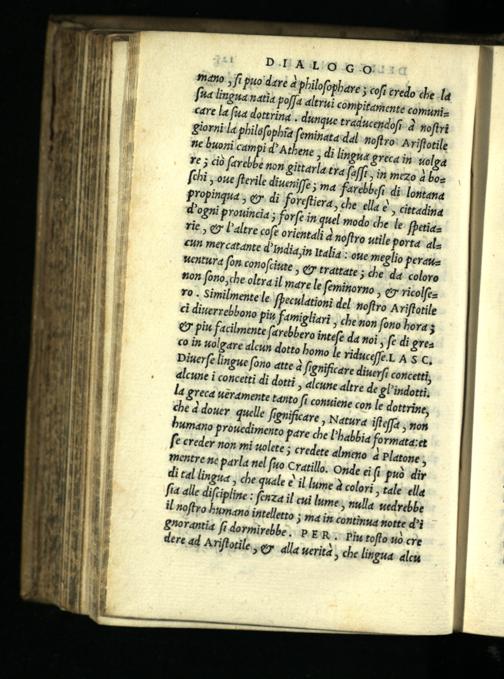 DIALOGO
mano, si puo dare à philosophare; cosi credo che la
sua lingua natia possa altrui compitamente comuni=
care la sua dottrina. dunque traducendosi à nostri
giorni la philosophia seminata dal nostro Aristotile
ne buoni campi d'Athene, di lingua greca in volga
re; ciò sarebbe non gittarla tra sassi, in mezo à bo=
schi, oue sterile diuenisse; ma farebbesi di lontana
propinqua, & di forestiera, che ella è, cittadina
d'ogni prouincia; forse in quel modo che le spetia=
rie, & l'altre cose orientali à nostro utile porta al=
cun mercatante d'India, in Italia: oue meglio perau=
uentura son conosciute, & trattate; che da coloro
non sono, che oltra il mare le seminorno, & ricolse=
ro. Similmente le speculationi del nostro Aristotile
ci diuerrebbono piu famigliari, che non sono hora;
& piu facilmente sarebbero intese da noi, se di gre=
co in volgare alcun dotto homo le riducesse. LASC.
Diuerse lingue sono atte à significare diuersi concetti,
alcune i concetti di dotti, alcune altre de gl'indotti.
la greca ueramente tanto si conuiene con le dottrine,
che à douer quelle significare, Natura istessa, non
humano prouedimento pare che l'habbia formata: et
se creder non mi uolete; credete almeno à Platone,
mentre ne parla nel suo Cratillo. Onde ei si può dir
di tal lingua, che quale è il lume à colori, tale ella
sia alle discipline: senza il cui lume, nulla uedrebbe
il nostro humano intelletto; ma in continua notte d'i
gnorantia si dormirebbe. PER. Piu tosto uò cre
dere ad Aristotile, & alla uerità, che lingua alcu